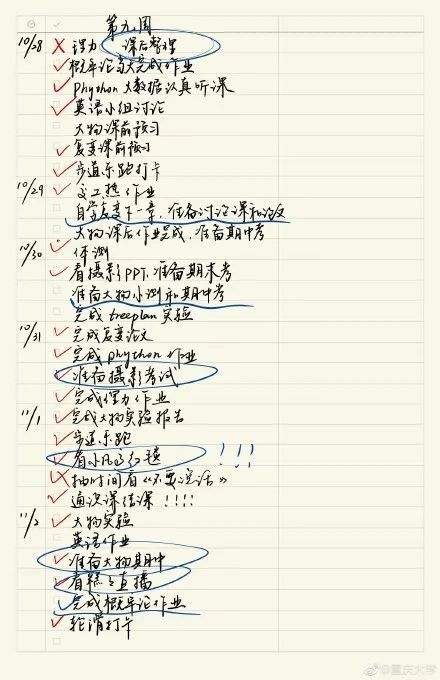 第九周
10/28 ✗ 理力 课后整理
✓ 概率论与大完成作业
✓ phython 大数据认真听课
✓ 英语小组讨论
大物课前预习
✓ 复变课前预习
✓ 步道乐跑打卡
10/29 ✓ 交工热作业
自学复变下一章,准备讨论课和论文
大物课后作业完成,准备期中考
10/30 ✓ 体测
✓ 看摄影PPT,准备期末考
准备大物小测和期中考
完成 treeplan 实验
10/31 ✓ 完成复变论文
✓ 完成 phython 作业
✓ 准备摄影考试
✓ 完成理力作业
11/1 ✓ 完成大物实验报告
✓ 步道乐跑
✓ 看小凡的红毯 !!!
✗ 抽时间看《不要说话》
✓ 通识课结课 !!!!
11/2 ✓ 大物实验
英语作业
✓ 准备大物期中
✓ 看 直播
✓ 完成概率论作业
✓ 轮滑打卡
@重庆大学